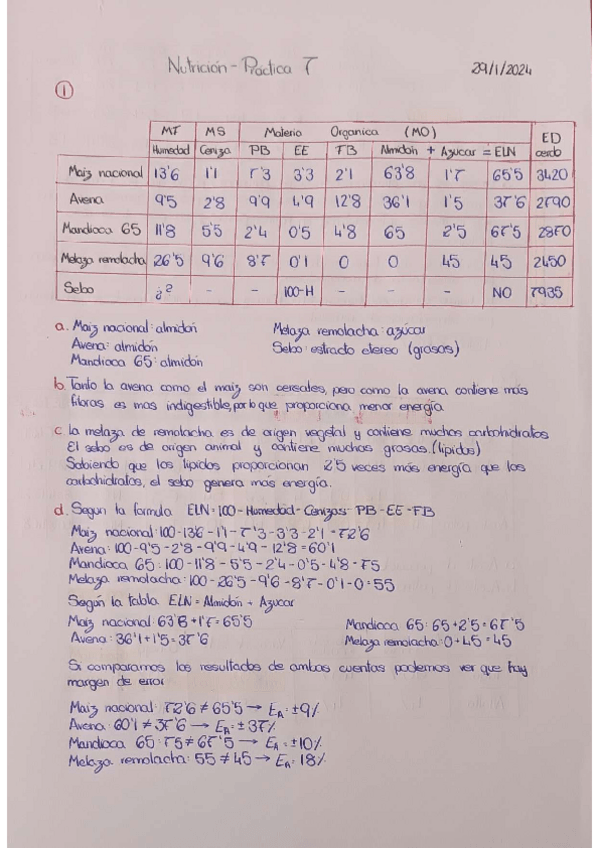 Nutrición - Práctica 7
29/1/2024
1
MT MS Materia Organica (MO) ED
Humedad Ceniza PB EE FB Almidón + Azucar = ELN cerdo
Maiz nacional 13'6 1'1 7'3 3'3 2'1 63'8 1'7 65'5 3420
Avena 9'5 2'8 9'9 4'9 12'8 36'1 1'5 37'6 2790
Mandioca 65 11'8 5'5 2'4 0'5 4'8 65 2'5 67'5 2870
Melaza remolacha 26'5 9'6 8'7 0'1 0 0 45 45 2450
Sebo ¿? - - 100-H - - - NO 7935
a. Maiz nacional: almidón Melaza remolacha: azúcar
Avena: almidón Sebo: estracto etereo (grasas)
Mandioca 65: almidón
b. Tanto la avena como el maiz son cereales, pero como la avena contiene más
fibras es mas indigestible, por lo que proporciona menor energía
c. la melaza de remolacha es de origen vegetal y contiene muchos carbohidratos
El sebo es de origen animal y contiene muchas grasas. (lipidos)
Sabiendo que los lipidos proporcionan 2'5 veces más energía que los
carbohidratos, el sebo genera más energía.
d. Segun la formula ELN = 100 - Humedad - Cenizas - PB - EE - FB
Maiz nacional: 100 - 13'6 - 1'1 - 7'3 - 3'3 - 2'1 = 72'6
Avena: 100 - 9'5 - 2'8 - 9'9 - 4'9 - 12'8 = 60'1
Mandioca 65: 100 - 11'8 - 5'5 - 2'4 - 0'5 - 4'8 = 75
Melaza remolacha: 100 - 26'5 - 9'6 - 8'7 - 0'1 - 0 = 55
Según la tabla ELN = Almidón + Azucar
Maiz nacional: 63'8 + 1'7 = 65'5 Mandioca 65: 65 + 2'5 = 67'5
Avena: 36'1 + 1'5 = 37'6 Melaza remolacha: 0 + 45 = 45
Si comparamos los resultados de ambas cuentas podemos ver que hay
margen de error
Maiz nacional: 72'6 ≠ 65'5 → EA = ±9%
Avena: 60'1 ≠ 37'6 → EA = ±37%
Mandioca 65: 75 ≠ 67'5 → EA = ±10%
Melaza remolacha: 55 ≠ 45 → EA = 18%